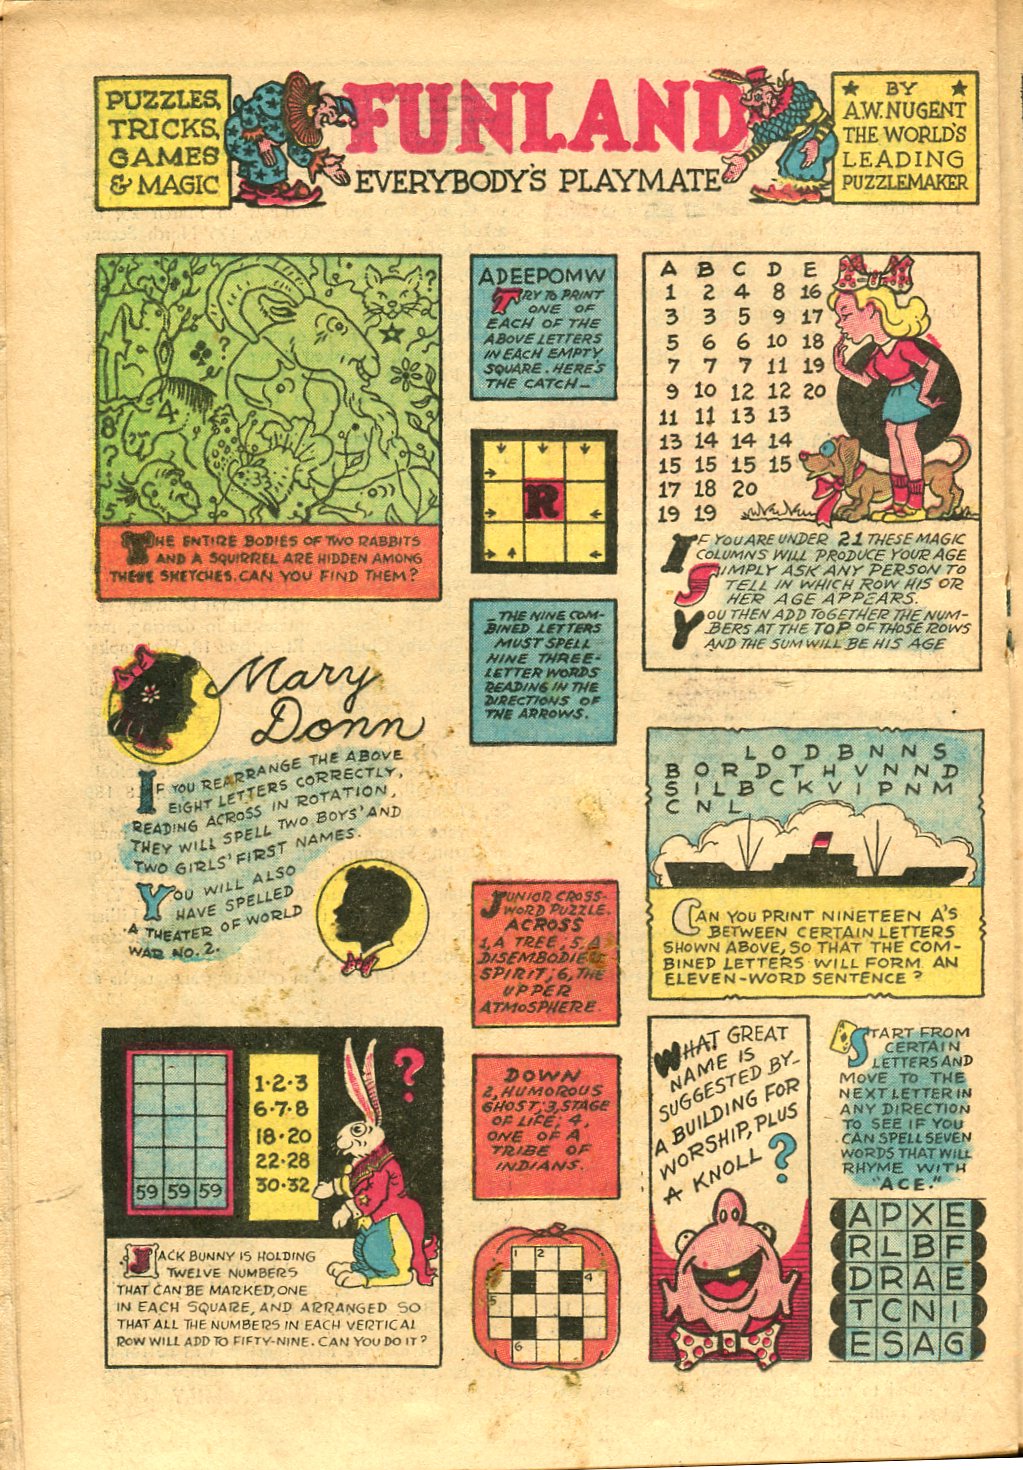 PUZZLES,
TRICKS,
GAMES
& MAGIC
FUNLAND
EVERYBODY'S PLAYMATE
★ BY ★
A.W. NUGENT
THE WORLD'S
LEADING
PUZZLEMAKER
8
?
4
8
5
THE ENTIRE BODIES OF TWO RABBITS
AND A SQUIRREL ARE HIDDEN AMONG
THESE SKETCHES. CAN YOU FIND THEM?
ADEEPOMW
TRY TO PRINT
ONE OF
EACH OF THE
ABOVE LETTERS
IN EACH EMPTY
SQUARE. HERE'S
THE CATCH—
R
—THE NINE COM-
BINED LETTERS
MUST SPELL
NINE THREE-
LETTER WORDS
READING IN THE
DIRECTIONS OF
THE ARROWS.
A B C D E
1 2 4 8 16
3 3 5 9 17
5 6 6 10 18
7 7 7 11 19
9 10 12 12 20
11 11 13 13
13 14 14 14
15 15 15 15
17 18 20
19 19
IF YOU ARE UNDER 21 THESE MAGIC
COLUMNS WILL PRODUCE YOUR AGE
SIMPLY ASK ANY PERSON TO
TELL IN WHICH ROW HIS OR
HER AGE APPEARS.
YOU THEN ADD TOGETHER THE NUM-
BERS AT THE TOP OF THOSE ROWS
AND THE SUM WILL BE HIS AGE
Mary
Donn
IF YOU REARRANGE THE ABOVE
EIGHT LETTERS CORRECTLY,
READING ACROSS IN ROTATION,
THEY WILL SPELL TWO BOYS' AND
TWO GIRLS' FIRST NAMES.
YOU WILL ALSO
HAVE SPELLED
A THEATER OF WORLD
WAR NO. 2.
LODBNNS
BORDTHVNND
SILBCKVIPNM
CNL
CAN YOU PRINT NINETEEN A'S
BETWEEN CERTAIN LETTERS
SHOWN ABOVE, SO THAT THE COM-
BINED LETTERS WILL FORM AN
ELEVEN-WORD SENTENCE?
JUNIOR CROSS-
WORD PUZZLE.
ACROSS
1, A TREE, 5, A
DISEMBODIED
SPIRIT; 6, THE
UPPER
ATMOSPHERE.
DOWN
2, HUMOROUS
GHOST; 3, STAGE
OF LIFE; 4,
ONE OF A
TRIBE OF
INDIANS.
1 2 3
4
5
6
59 59 59
1·2·3
6·7·8
18·20
22·28
30·32
?
JACK BUNNY IS HOLDING
TWELVE NUMBERS
THAT CAN BE MARKED, ONE
IN EACH SQUARE, AND ARRANGED SO
THAT ALL THE NUMBERS IN EACH VERTICAL
ROW WILL ADD TO FIFTY-NINE. CAN YOU DO IT?
WHAT GREAT
NAME IS
SUGGESTED BY—
A BUILDING FOR
WORSHIP, PLUS
A KNOLL ?
START FROM
CERTAIN
LETTERS AND
MOVE TO THE
NEXT LETTER IN
ANY DIRECTION
TO SEE IF YOU
CAN SPELL SEVEN
WORDS THAT WILL
RHYME WITH
"ACE."
APXE
RLBF
DRAE
TCNI
ESAG